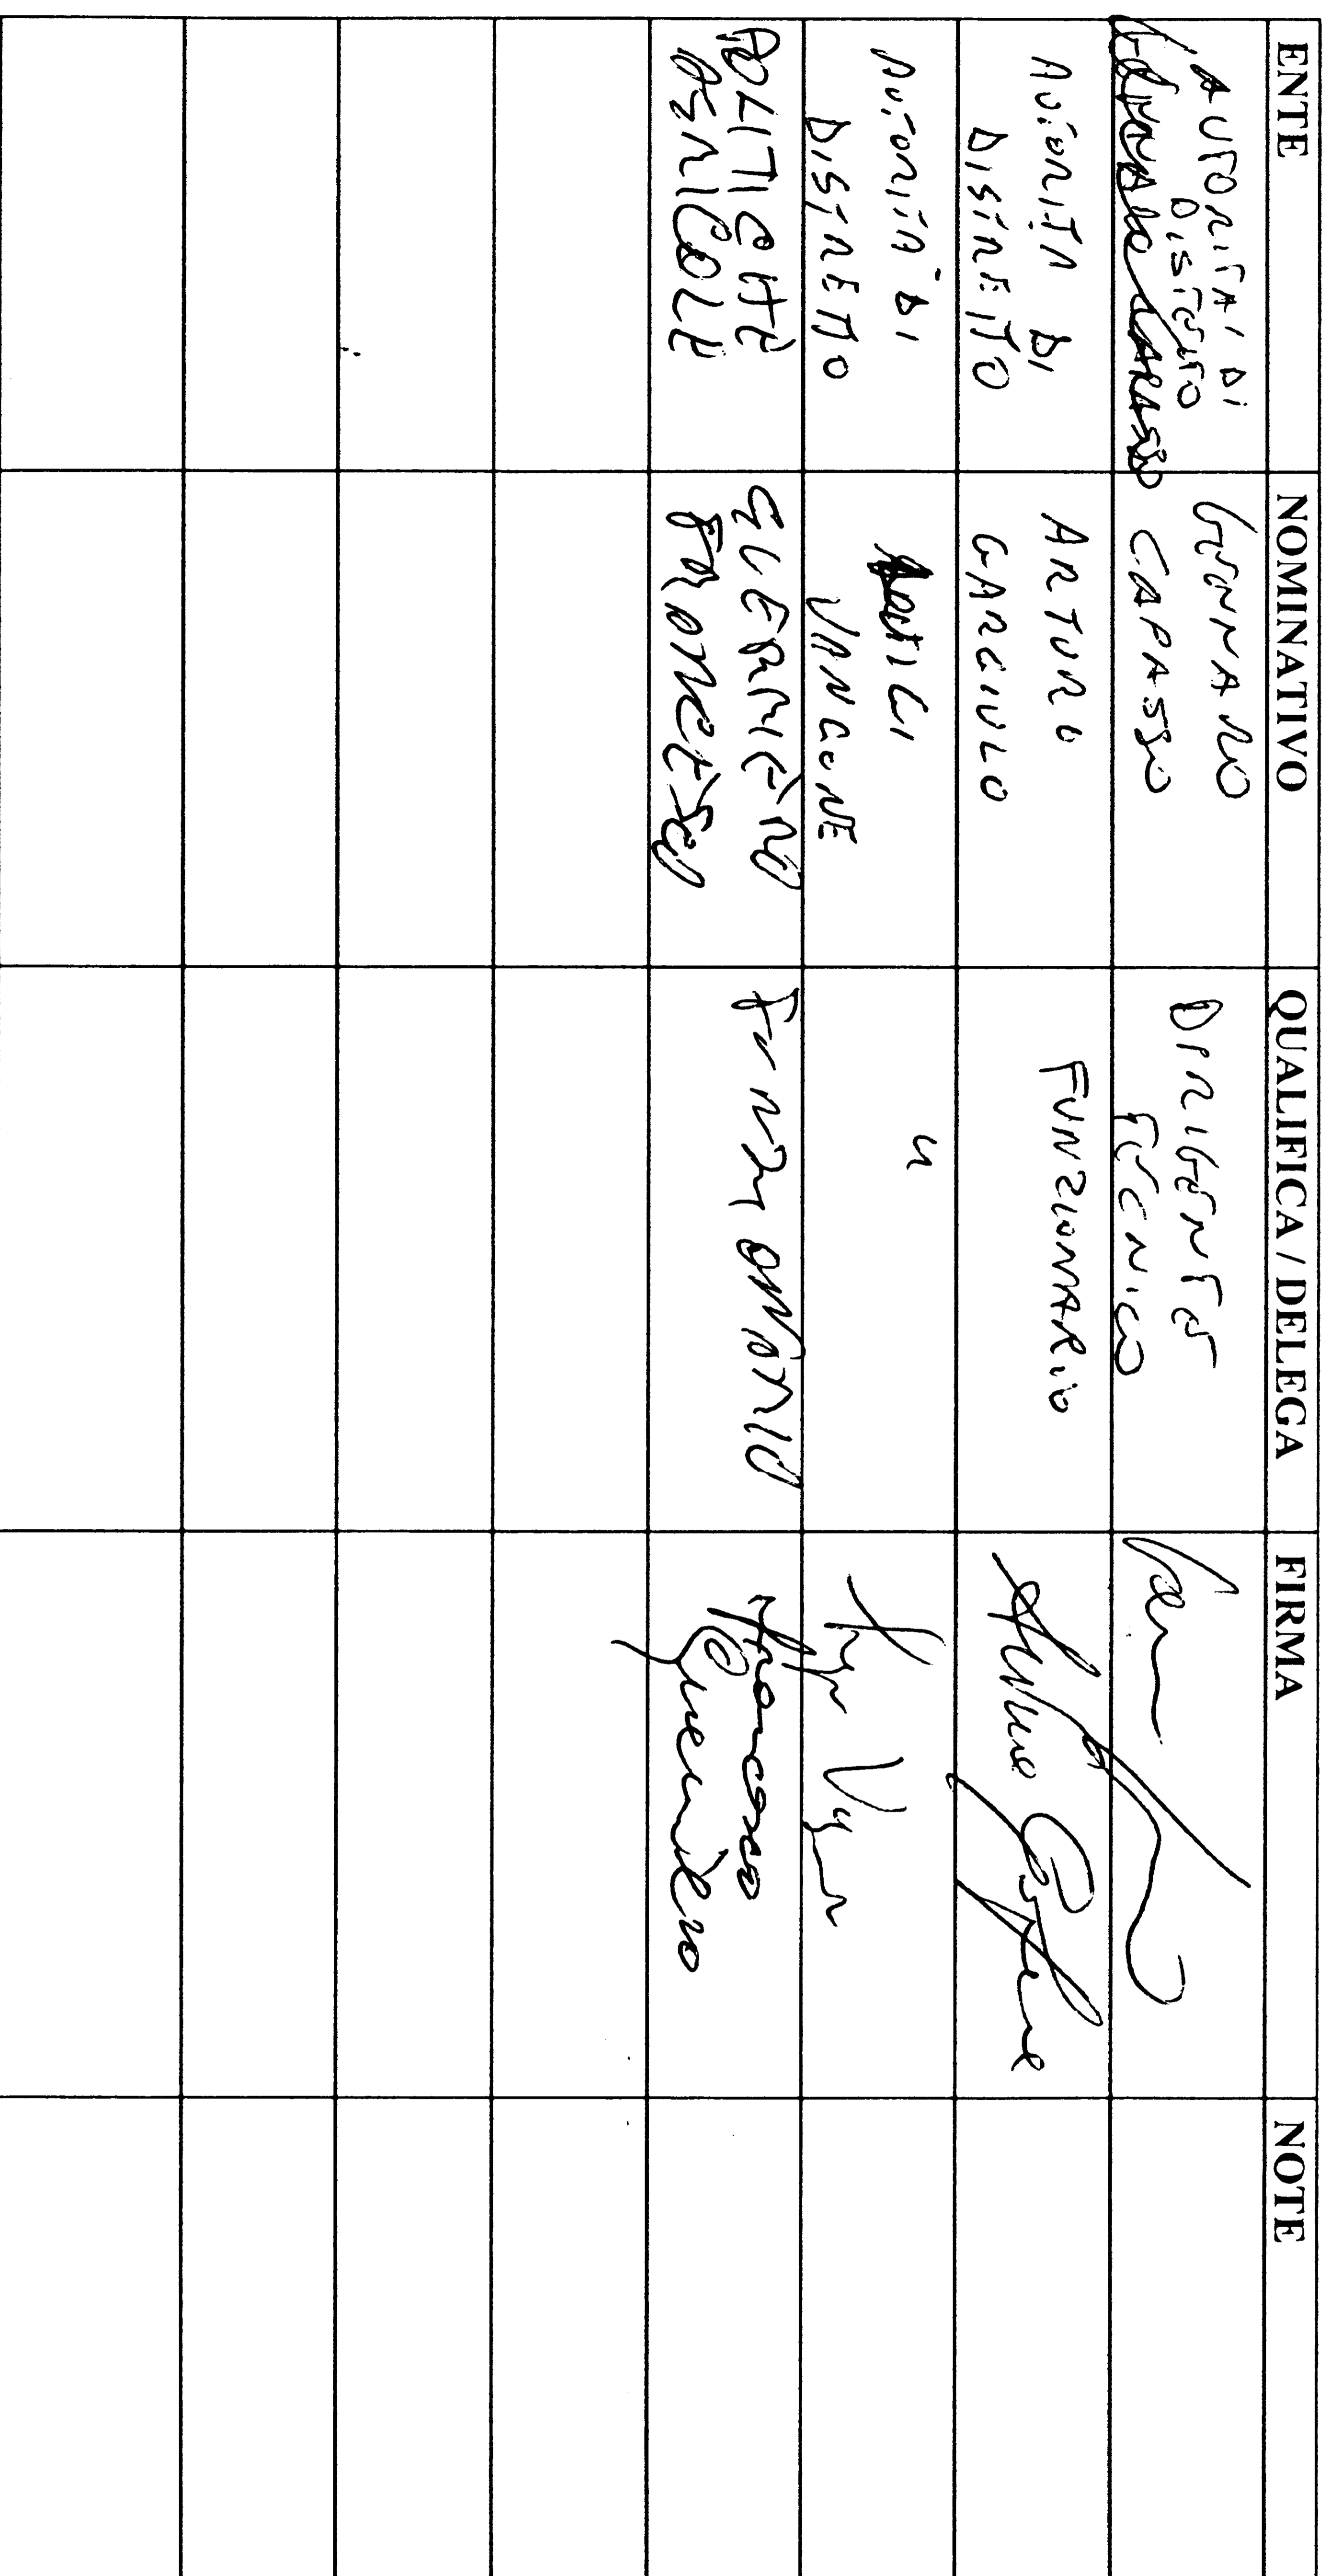 ENTE NOMINATIVO QUALIFICA / DELEGA FIRMA NOTE
AUTORITA' DI
DISTRETTO
GENNARO
CAPASSO
DIRIGENTE
TECNICO
AUTORITA DI
DISTRETTO
ARTURO
GARGIULO
FUNZIONARIO
AUTORITA' DI
DISTRETTO
VANGONE
"
POLITICHE
AGRICOLE
GUERRIERO
FRANCESCO
FUNZIONARIO
Francesco
Guerriero